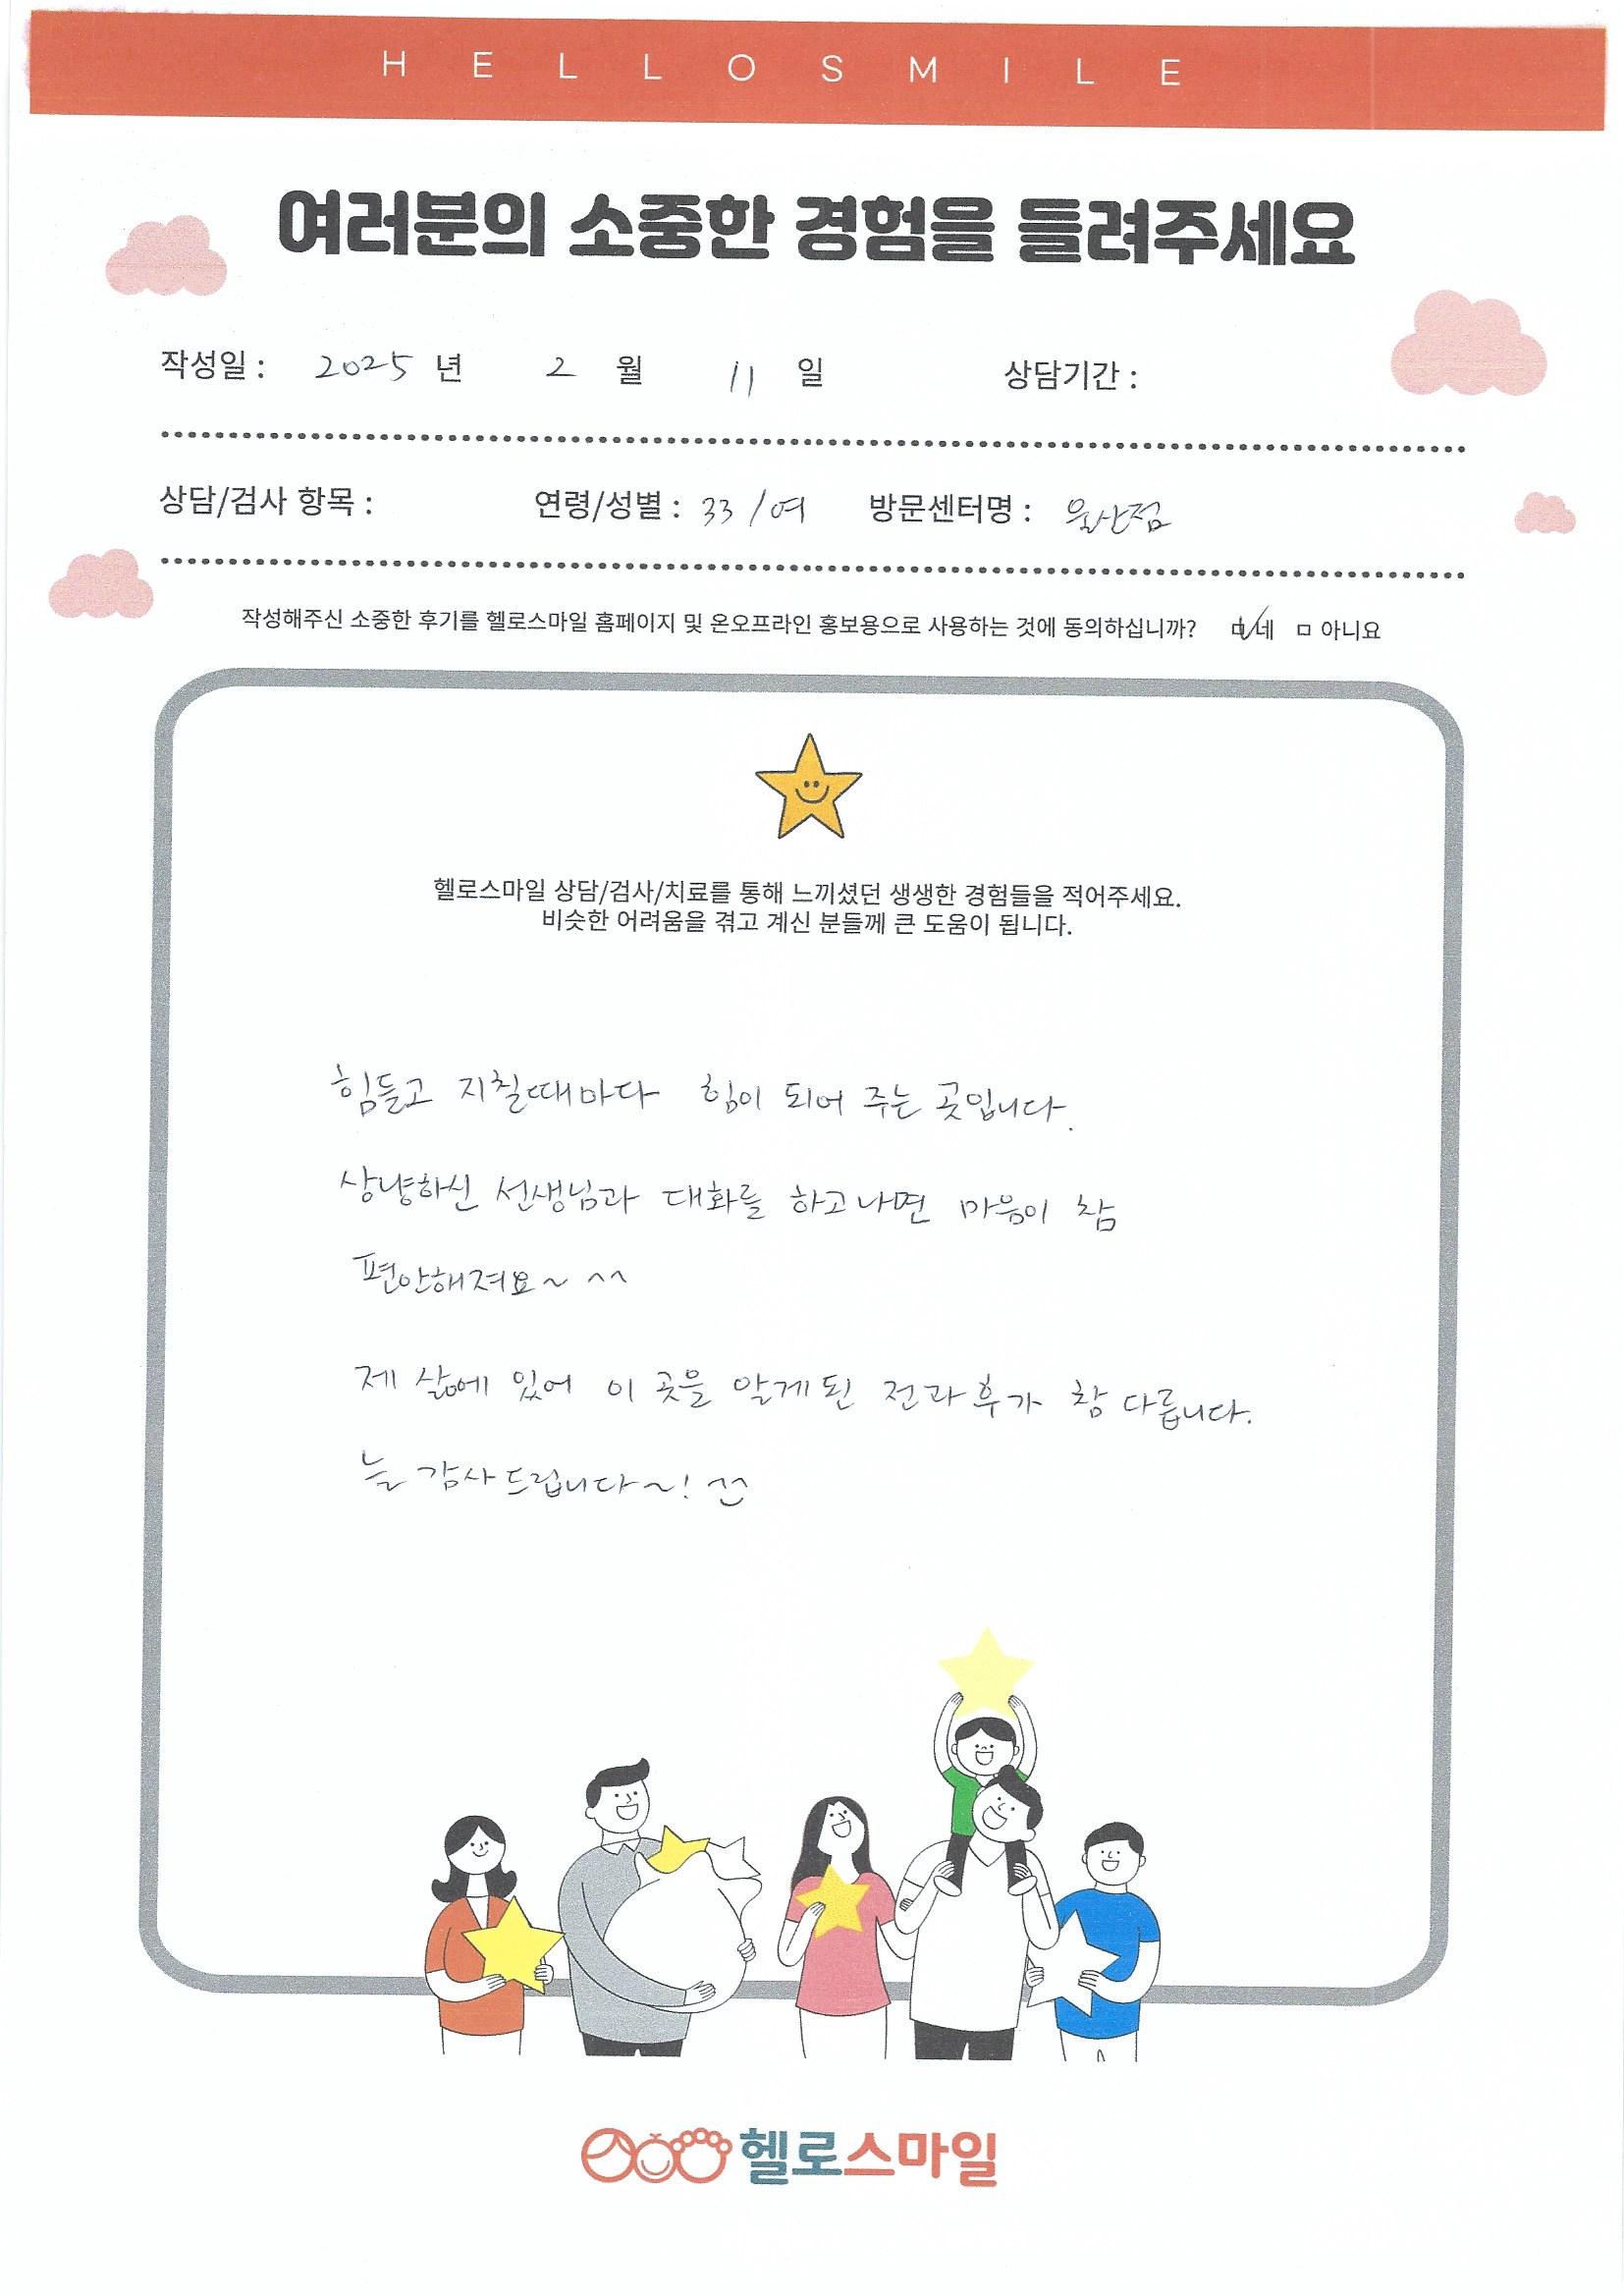 HELLOSMILE
여러분의 소중한 경험을 들려주세요
작성일 : 2025 년 2 월 11 일 상담기간 :
상담/검사 항목 : 연령/성별 : 33 / 여 방문센터명 : 울산점
작성해주신 소중한 후기를 헬로스마일 홈페이지 및 온오프라인 홍보용으로 사용하는 것에 동의하십니까? ☑ 네 □ 아니요
헬로스마일 상담/검사/치료를 통해 느끼셨던 생생한 경험들을 적어주세요.
비슷한 어려움을 겪고 계신 분들께 큰 도움이 됩니다.
힘들고 지칠때마다 힘이 되어 주는 곳입니다.
상냥하신 선생님과 대화를 하고나면 마음이 참
편안해져요~ ^^
제 삶에 있어 이 곳을 알게된 전과후가 참 다릅니다.
늘 감사드립니다~! ^^
헬로스마일